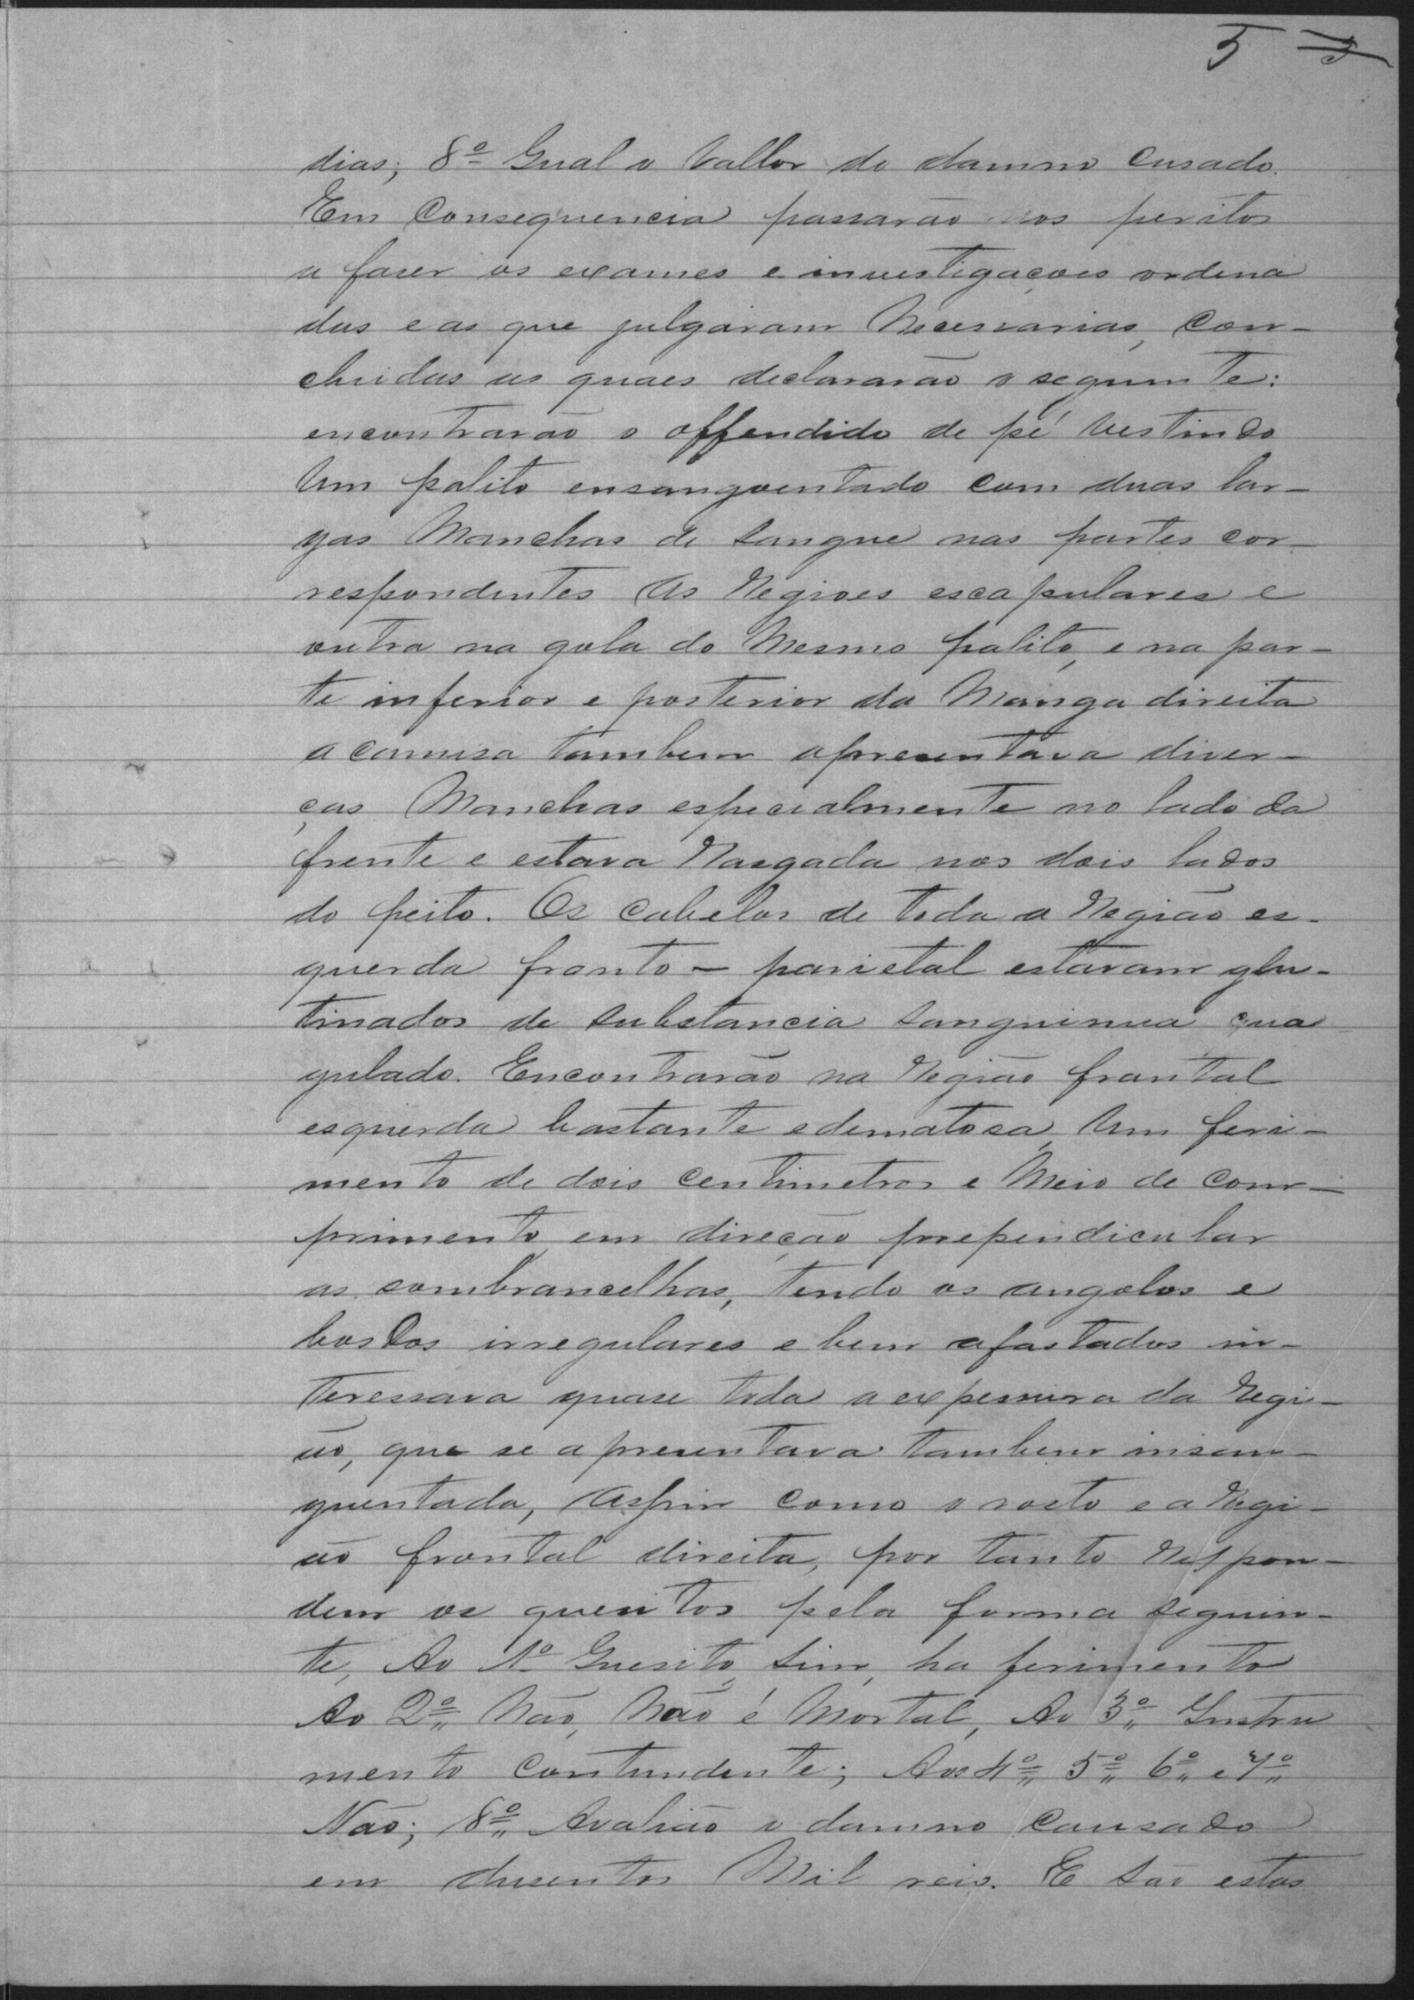 5 3
dias; 8º Qual o vallor do damno cusado.
Em consequencia passarão nos peritos
a faser os exames e investigaçoes ordena
das e as que julgaram necessarias, con-
cluidas as quaes declararão o seguinte:
encontrarão o offendido de pé vestindo
um palito ensangoentado com duas lar-
gas manchas de sangue nas partes cor-
respondentes as regioes escapulares e
outra na gola do mesmo palito, e na par-
te inferior e posterior da manga direita
a camisa tambem apresentava diver-
ças manchas especialmente no lado da
frente e estava rasgada nos dois lados
do peito. Os cabelos de toda a região es-
querda fronto - parietal estavam glu-
tinados de substancia sanguinea qua
gulado. Encontrarão na região frontal
esquerda bastante edematosa, um feri-
mento de dois centimetros e meio de com-
primento, em direção prependicular
as sombrancelhas, tendo os angolos e
bordos irregulares e bem afastados in-
teressava quase toda a expessura da regi-
ão, que se apresentava tambem insan-
guentada, assim como o rosto e a regi-
ão frontal direita, por tanto respon-
dem os quesitos pela forma seguin-
te, Ao 1º Quesito, sim, ha ferimento
Ao 2º Não, não é mortal, Ao 3º Instru
mento contundente; Aos 4º 5º 6º e 7º
Não; 8º Avalião o damno causado
em dusentos mil reis. E são estas